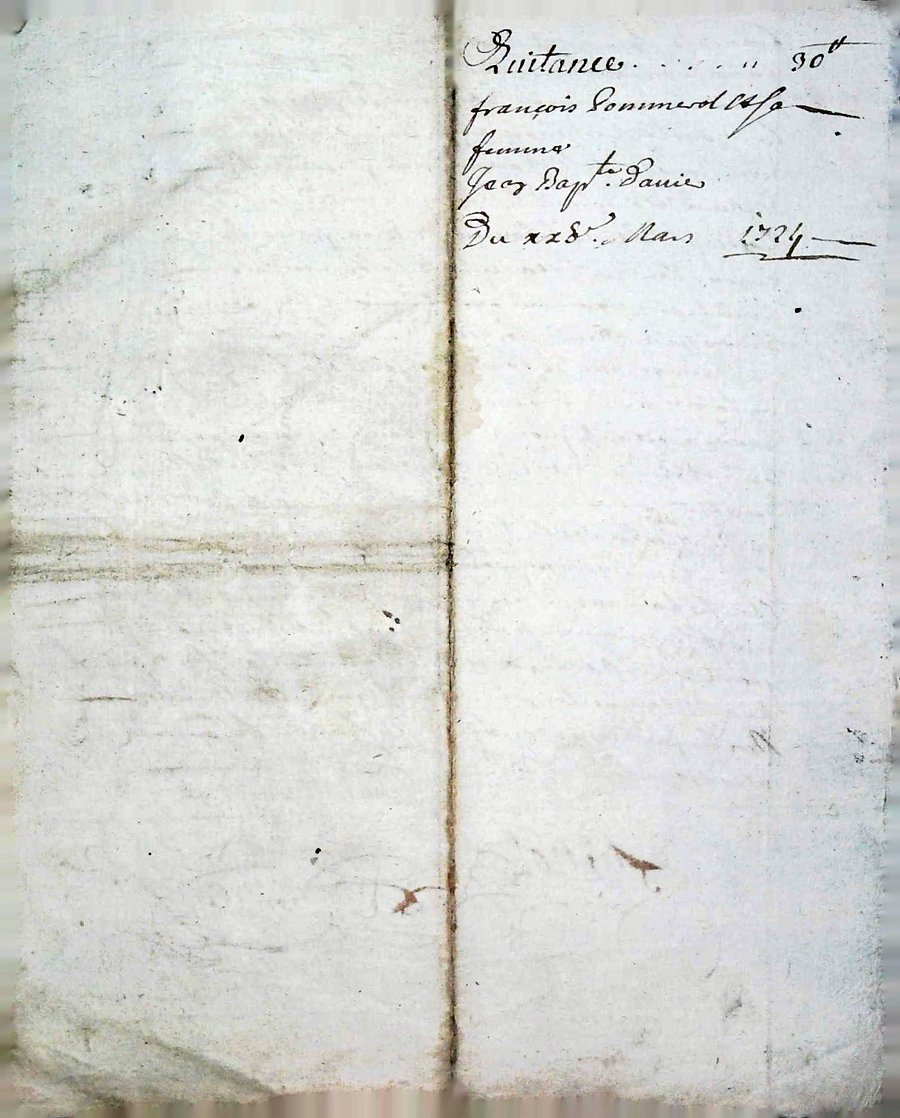 Quitance . . . . . " 30ᵗᵗ
françois Pommerol et sa
femme
Jean Bapᵗᵉ.
Du Mars 1724